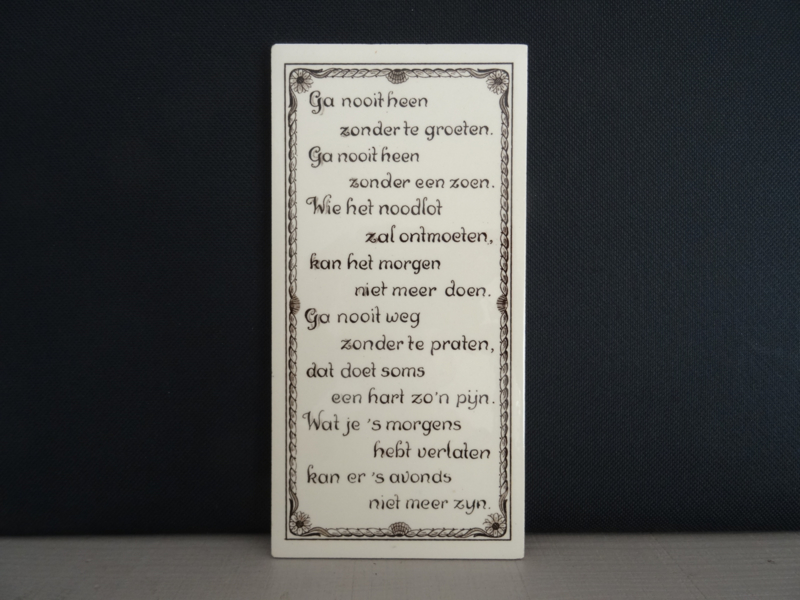 Ga nooit heen
zonder te groeten.
Ga nooit heen
zonder een zoen.
Wie het noodlot
zal ontmoeten,
kan het morgen
niet meer doen.
Ga nooit weg
zonder te praten,
dat doet soms
een hart zo'n pijn.
Wat je 's morgens
hebt verlaten
kan er 's avonds
niet meer zyn.